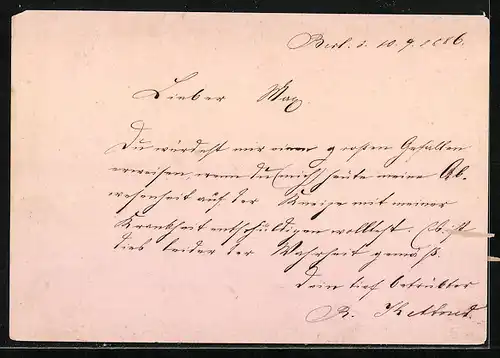 Berl. d. 10.9.1886.
Lieber Max
Du würdest mir einen großen Gefallen
erweisen, wenn du (mich) heute meine Ab-
wesenheit auf der Kneipe mit meiner
Krankheit entschuldigen wolltest. Es ist
dies leider der Wahrheit gemäß.
Dein tief betrübter
R.